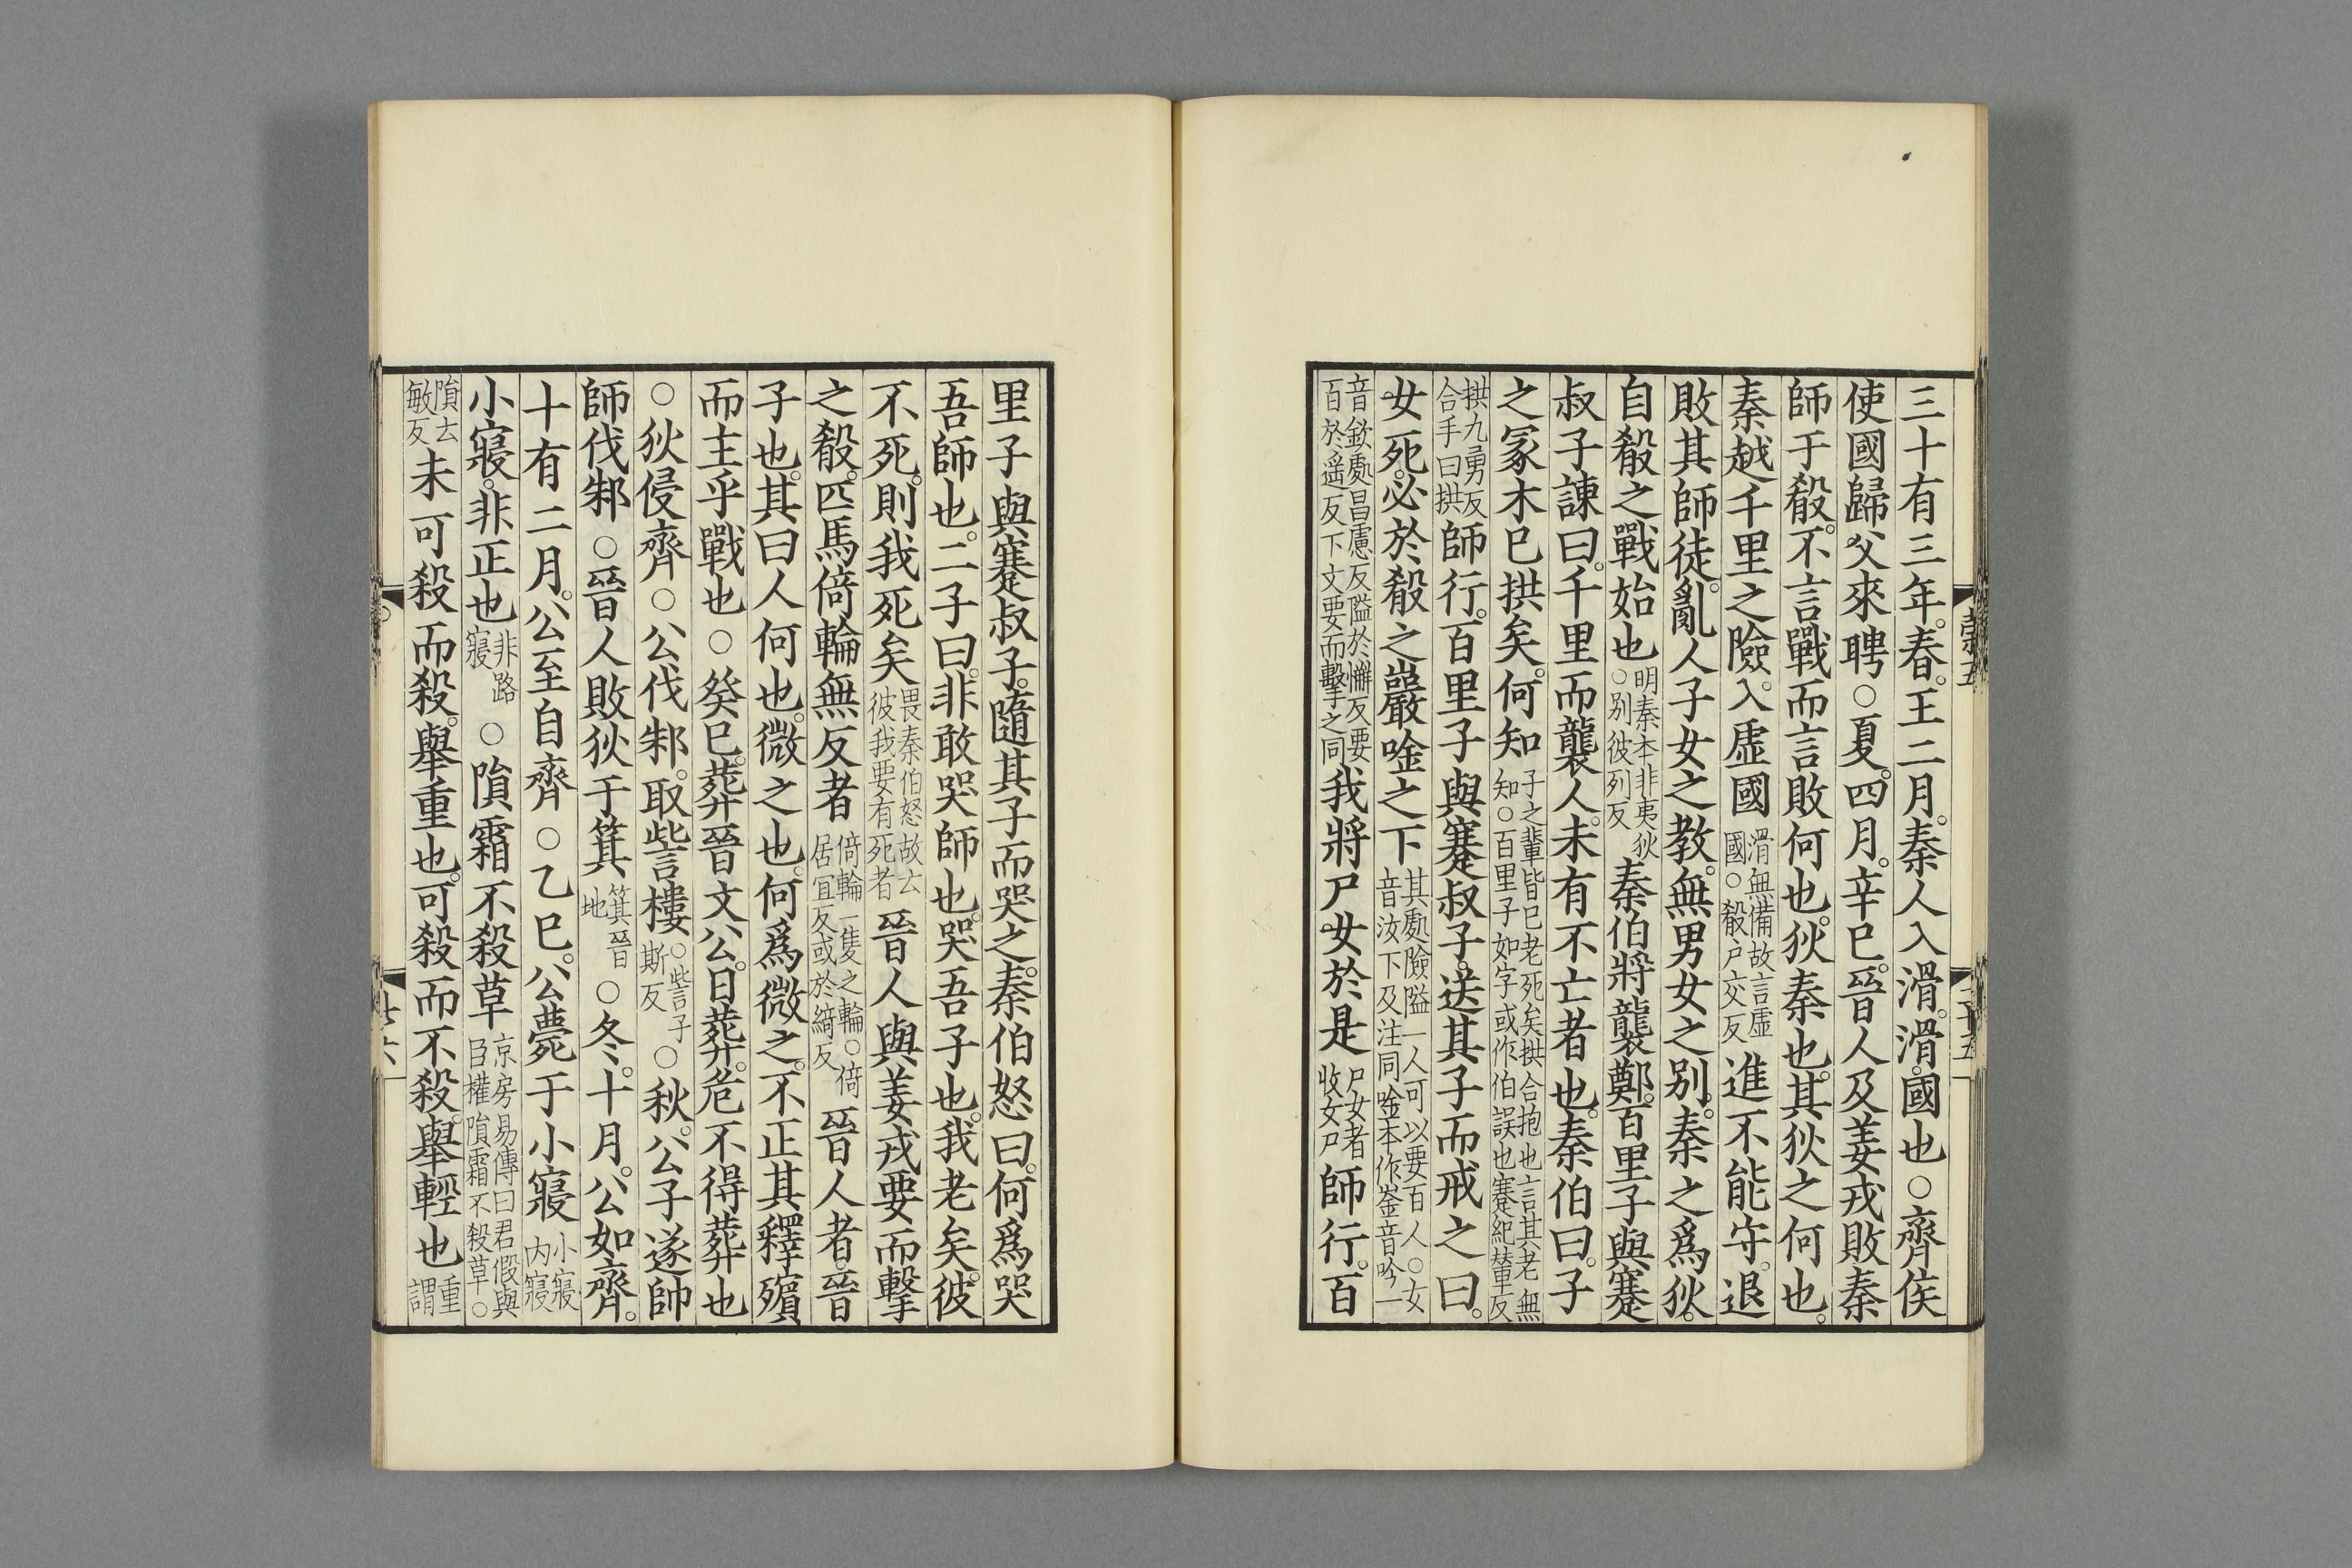 三十有三年。春。王二月。秦人入滑。滑。國也○齊侯
使國歸父來聘○夏。四月。辛巳。晉人及姜戎敗秦
師于殽。不言戰而言敗何也。狄秦也。其狄之何也。
秦越千里之險。入虛國滑無備故言虛國○殽戶交反進不能守。退
敗其師徒。亂人子女之教。無男女之別。秦之爲狄。
自殽之戰始也明秦本非夷狄○別彼列反秦伯將襲鄭。百里子與蹇
叔子諫曰。千里而襲人。未有不亡者也。秦伯曰。子
之冢木已拱矣。何知子之輩皆已老死矣拱合抱也言其老無知○百里子如字或作伯誤也蹇紀輦反
拱九勇反合手曰拱師行。百里子與蹇叔子。送其子而戒之曰。
女死。必於殽之巖唫之下其處險隘一人可以要百人○女音汝下及注同唫本作崟音吟一
音欽處昌慮反隘於懈反要百於遥反下文要而擊之同我將尸女於是尸女者收女尸師行。百
里子與蹇叔子。隨其子而哭之。秦伯怒曰。何爲哭
吾師也。二子曰。非敢哭師也。哭吾子也。我老矣。彼
不死。則我死矣畏秦伯怒故云彼我要有死者晉人與姜戎要而擊
之殽。匹馬倚輪無反者倚輪一隻之輪○倚居宜反或於綺反晉人者。晉
子也。其曰人何也。微之也。何爲微之。不正其釋殯
而主乎戰也○癸巳。葬晉文公。日葬。危不得葬也
○狄侵齊○公伐邾。取訾樓○訾子斯反○秋。公子遂帥
師伐邾○晉人敗狄于箕箕晉地○冬。十月。公如齊。
十有二月。公至自齊○乙巳。公薨于小寢小寢内寢
小寢。非正也非路寢○隕霜不殺草京房易傳曰君假與臣權隕霜不殺草○
隕云敏反未可殺而殺。舉重也。可殺而不殺。舉輕也重謂
二十五
廿六